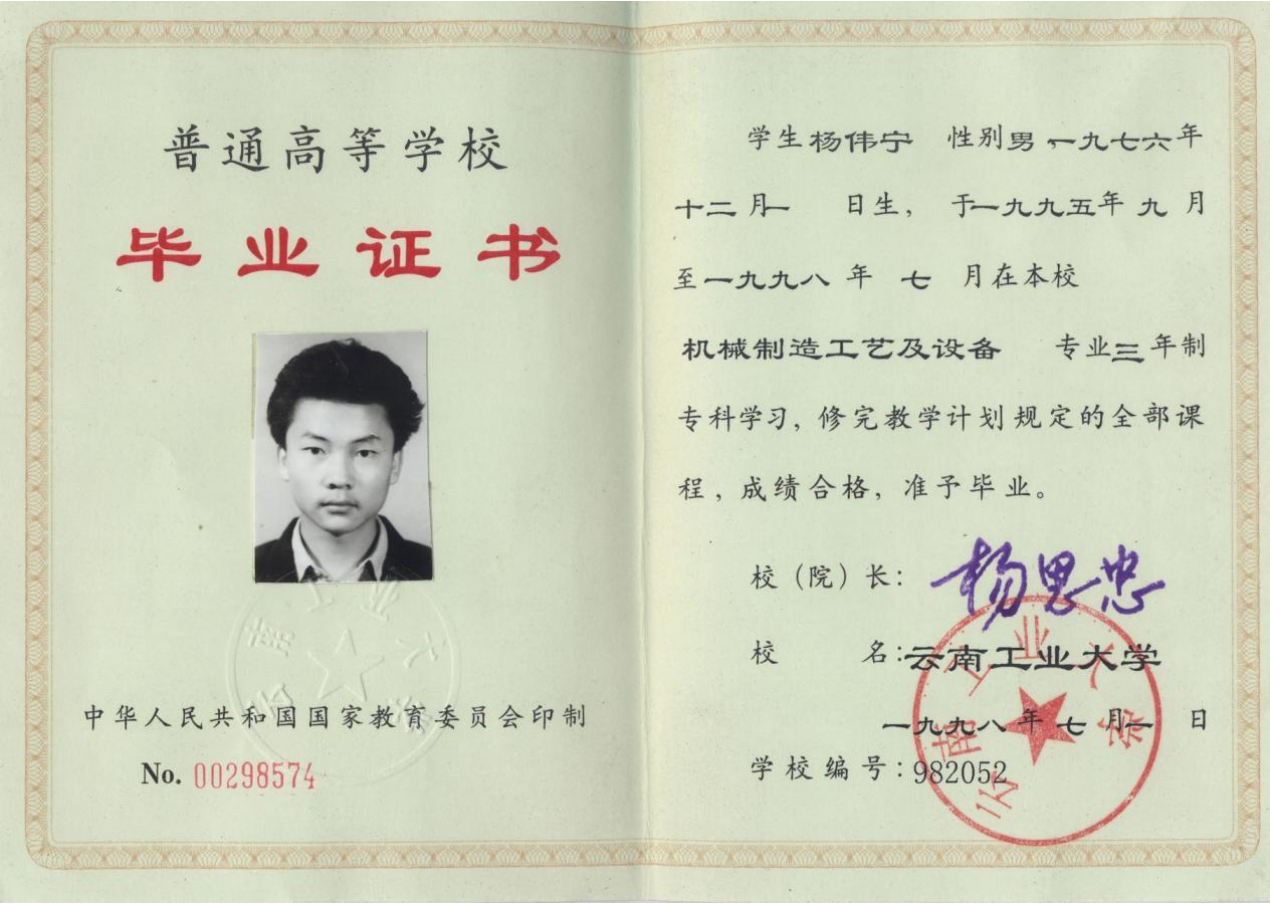 普通高等学校
毕业证书
工业大
云南
学
中华人民共和国国家教育委员会印制
No. 00298574
学生杨伟宁 性别男,一九七六年
十二月一 日生, 于一九九五年九月
至一九九八年 七 月在本校
机械制造工艺及设备 专业三年制
专科学习, 修完教学计划规定的全部课
程, 成绩合格, 准予毕业。
校(院)长: 杨思忠
校 名: 云南工业大学
一九九八年七月一 日
学校编号: 982052
云南工业大学